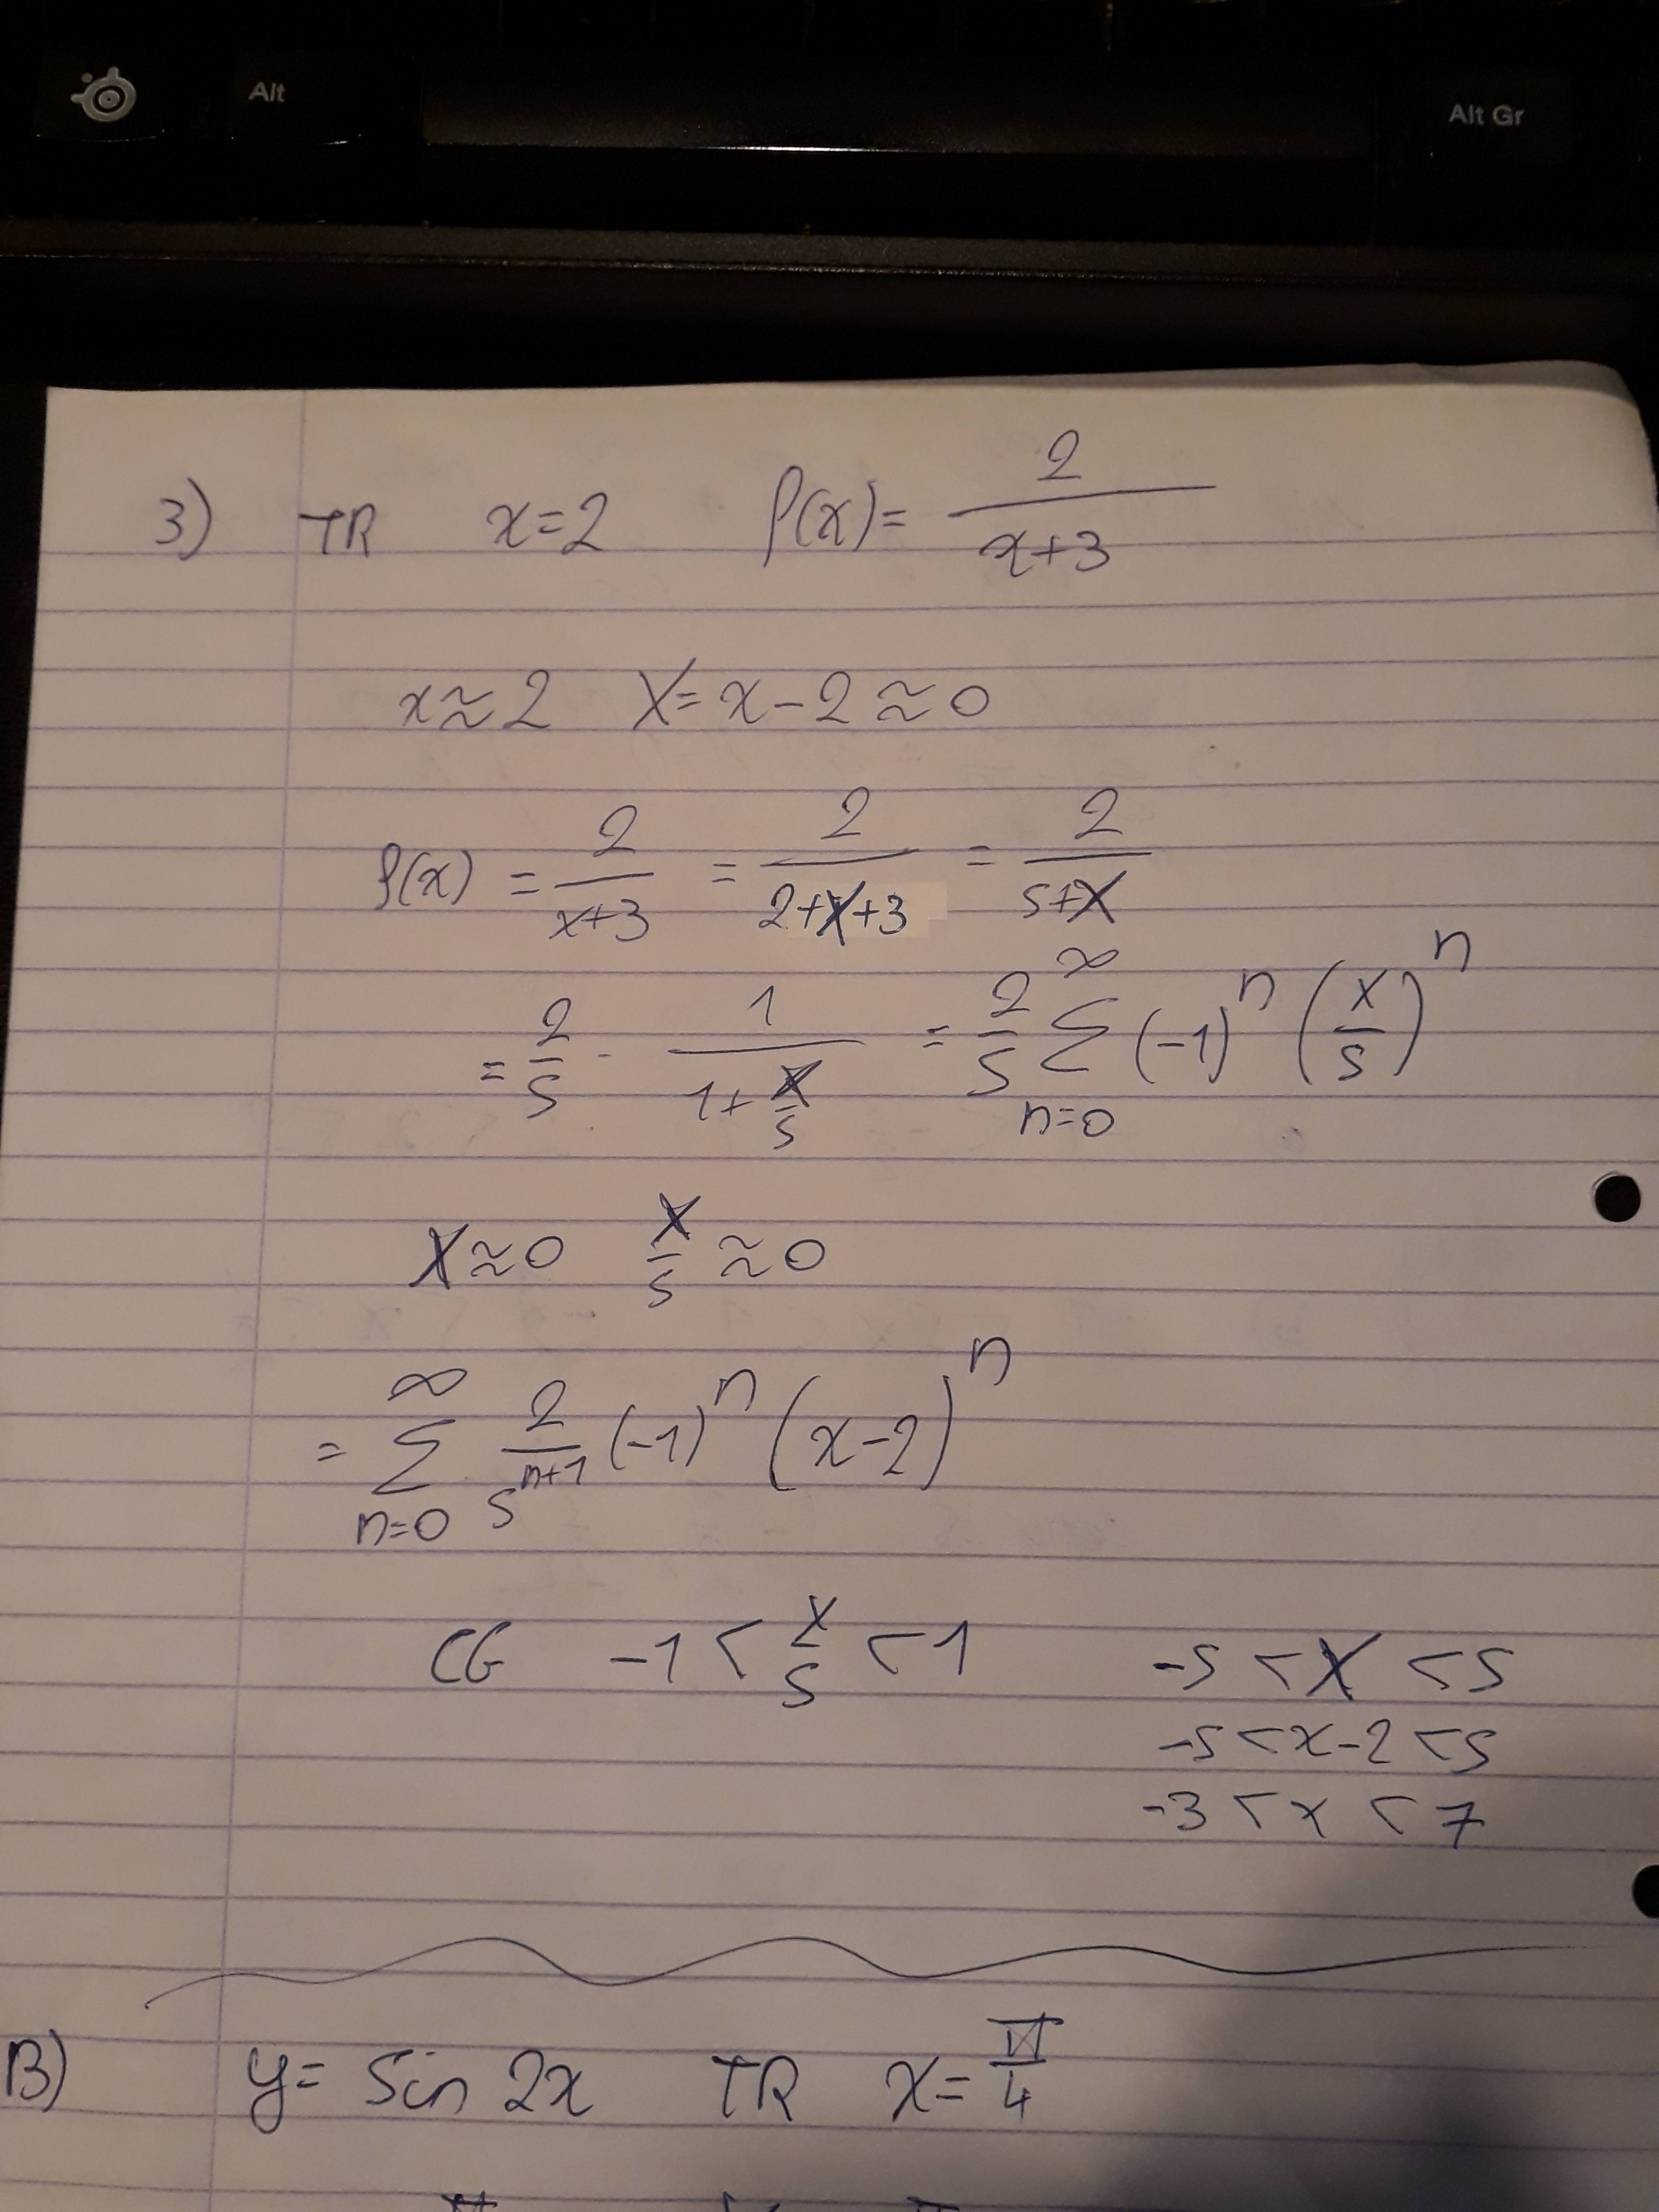 Alt Alt Gr
3) TR x=2 f(x)= 2/(x+3)
x≈2 X=x-2≈0
f(x) = 2/(x+3) = 2/(2+X+3) = 2/(5+X)
= 2/5 · 1/(1+X/5) = 2/5 ∑_{n=0}^{∞} (-1)^n (X/5)^n
X≈0 X/5≈0
= ∑_{n=0}^{∞} 2/5^{n+1} (-1)^n (x-2)^n
CG -1 < X/5 < 1 -5 < X < 5
-5 < x-2 < 5
-3 < x < 7
B) y= Sin 2x TR x= π/4